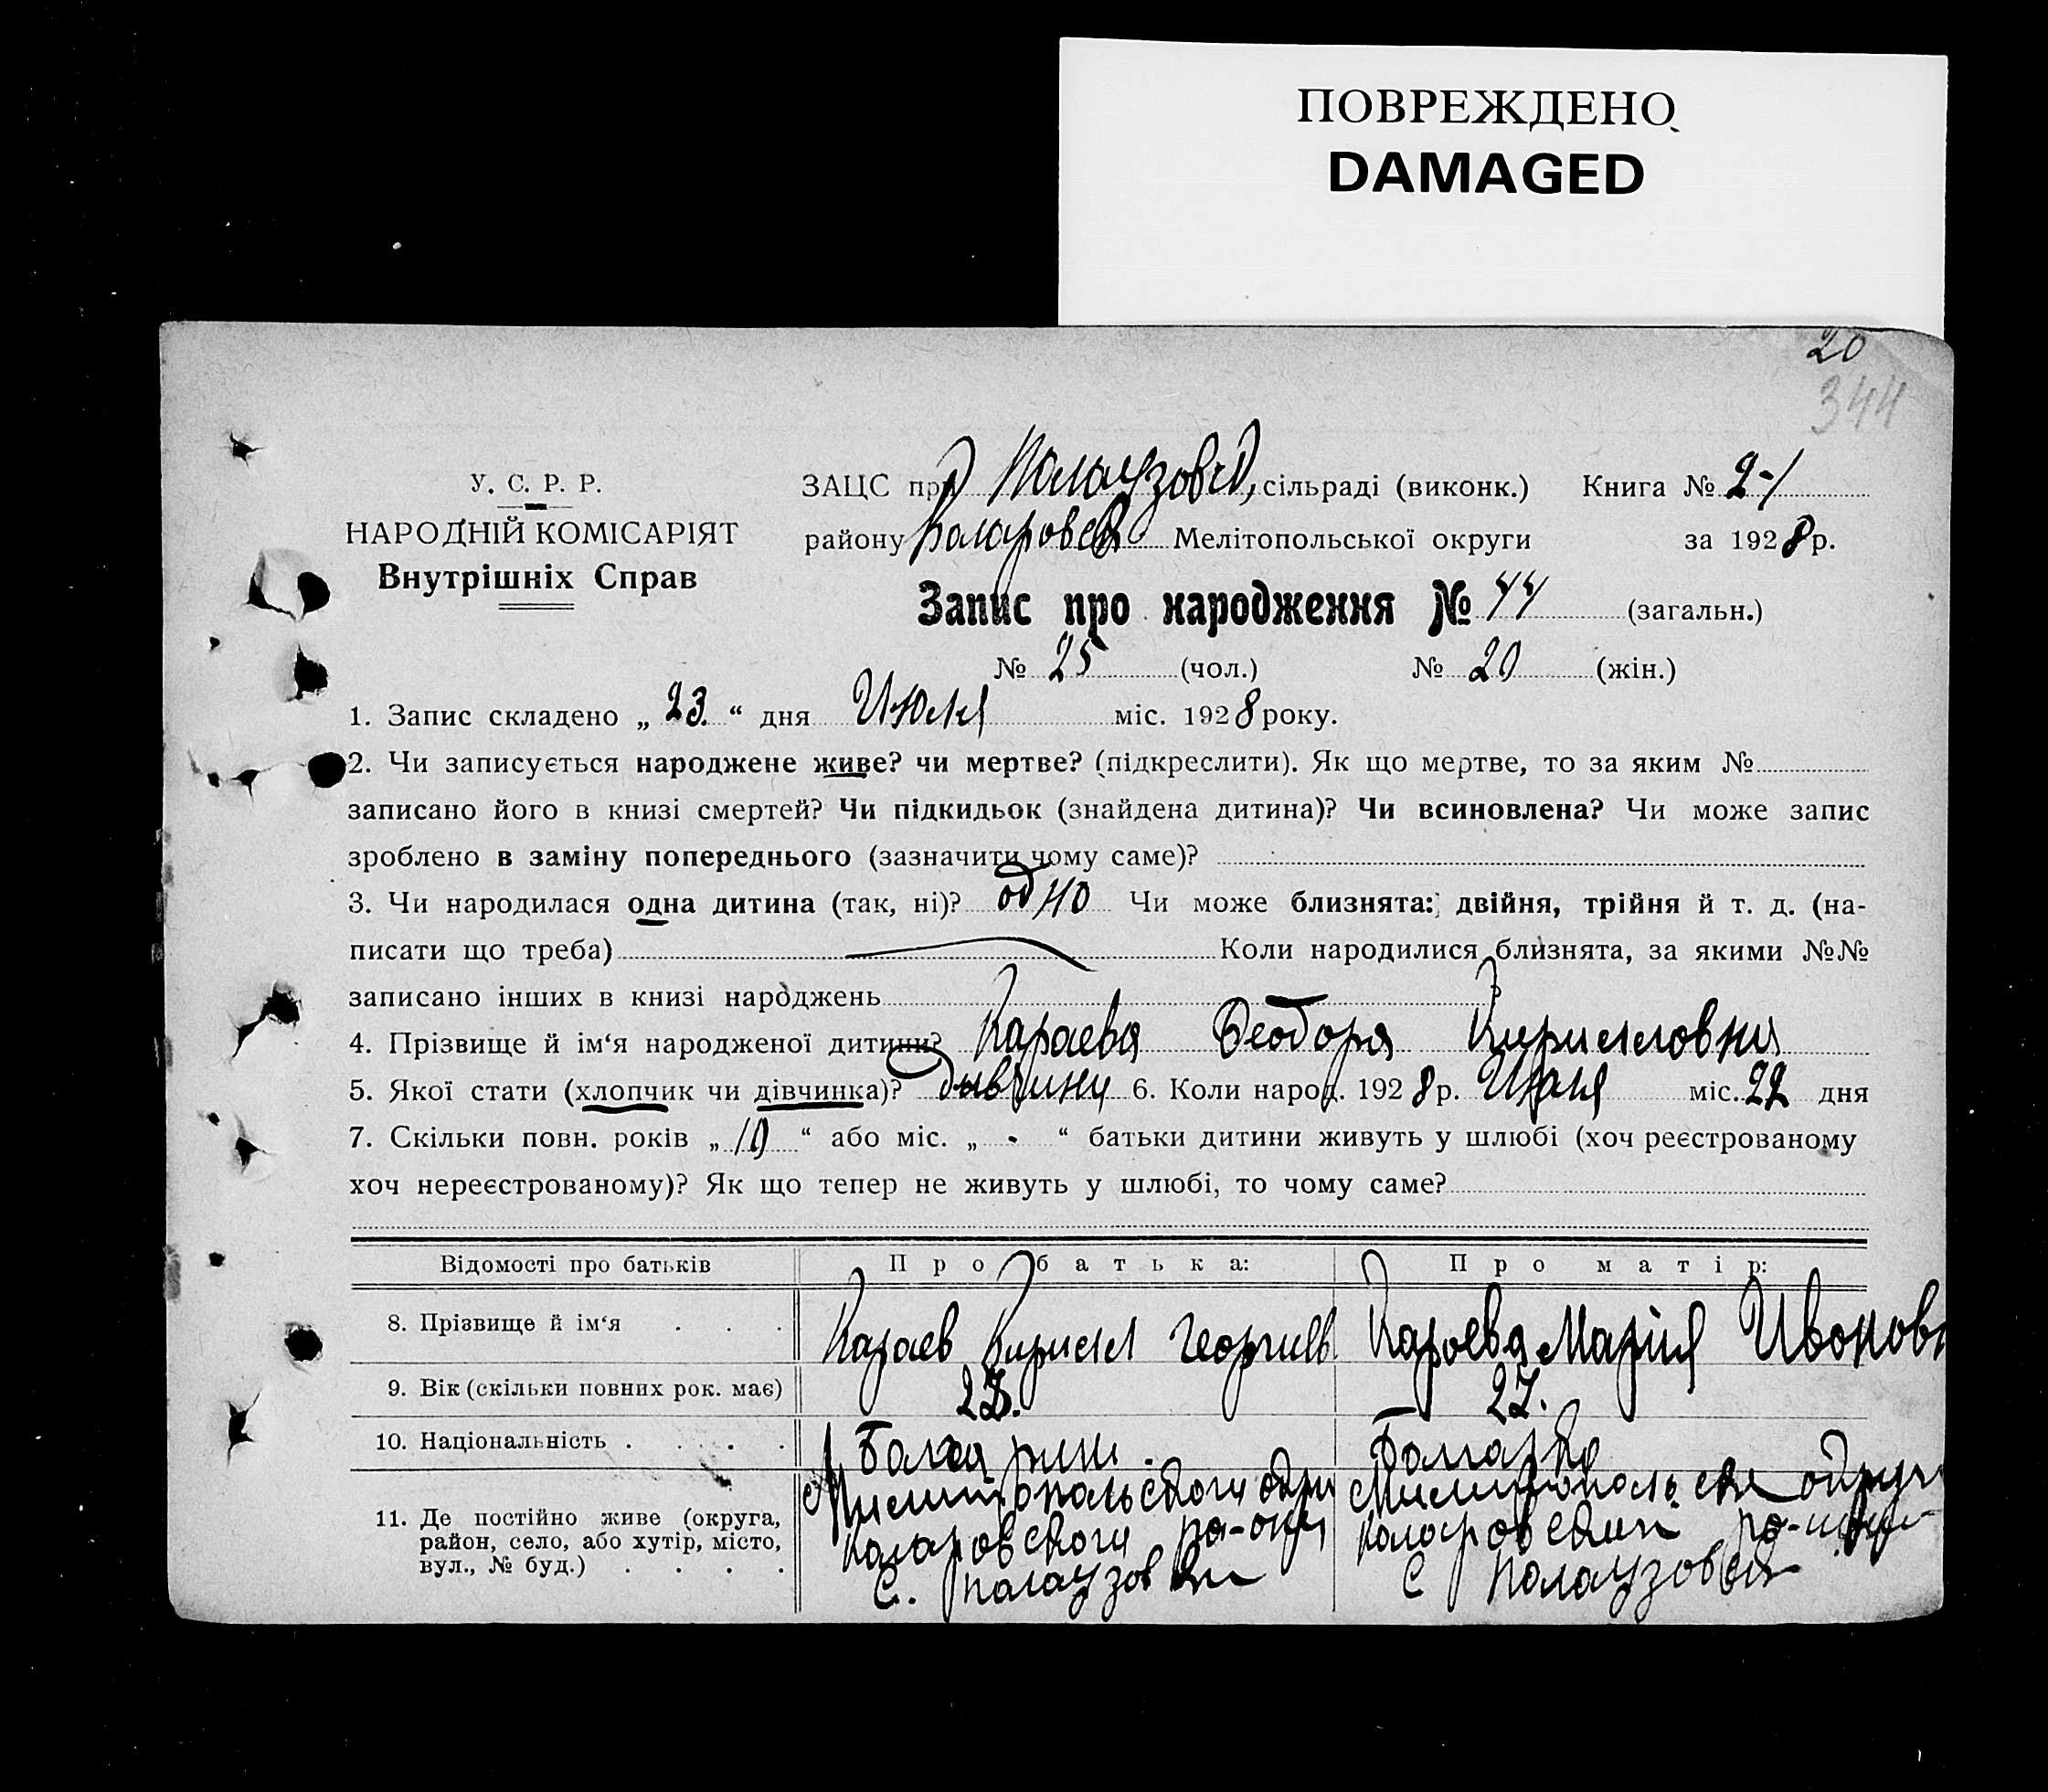 ПОВРЕЖДЕНО
DAMAGED
20
344
У. С. Р. Р.
НАРОДНІЙ КОМІСАРІЯТ
Внутрішніх Справ
ЗАЦС при Палаузовск, сільраді (виконк.) Книга № 2-1
району Коларовск Мелітопольської округи за 1928 р.
Запис про народження № 44 (загальн.)
№ 25 (чол.) № 20 (жін.)
1. Запис складено „ 23. “ дня Июля міс. 1928 року.
2. Чи записується народжене живе? чи мертве? (підкреслити). Як що мертве, то за яким №
записано його в книзі смертей? Чи підкидьок (знайдена дитина)? Чи всиновлена? Чи може запис
зроблено в заміну попереднього (зазначити чому саме)?
3. Чи народилася одна дитина (так, ні)? одно Чи може близнята: двійня, трійня й т. д. (на-
писати що треба) Коли народилися близнята, за якими №№
записано інших в книзі народжень
4. Прізвище й ім‘я народженої дитини? Караева Феодора Кирилловна
5. Якої стати (хлопчик чи дівчинка)? 6. Коли народ. 1928 р. Июля міс. 22 дня
7. Скільки повн. років „ 10 “ або міс. „ - “ батьки дитини живуть у шлюбі (хоч реєстрованому
хоч нереєстрованому)? Як що тепер не живуть у шлюбі, то чому саме?
Відомості про батьків Про батька: Про матір:
8. Прізвище й ім‘я . . . Караев Кирилл Георгиев Караева Мария Иванов
9. Вік (скільки повних рок. має) 27.
10. Національність . . . . Болгарин. Болгарка
11. Де постійно живе (округа,
район, село, або хутір, місто,
вул., № буд.) . . . .
Мелитопольского окру
Коларовского ра-она
С. Палаузовки
Мелитопольск округи
Коларовском
С Палаузовка